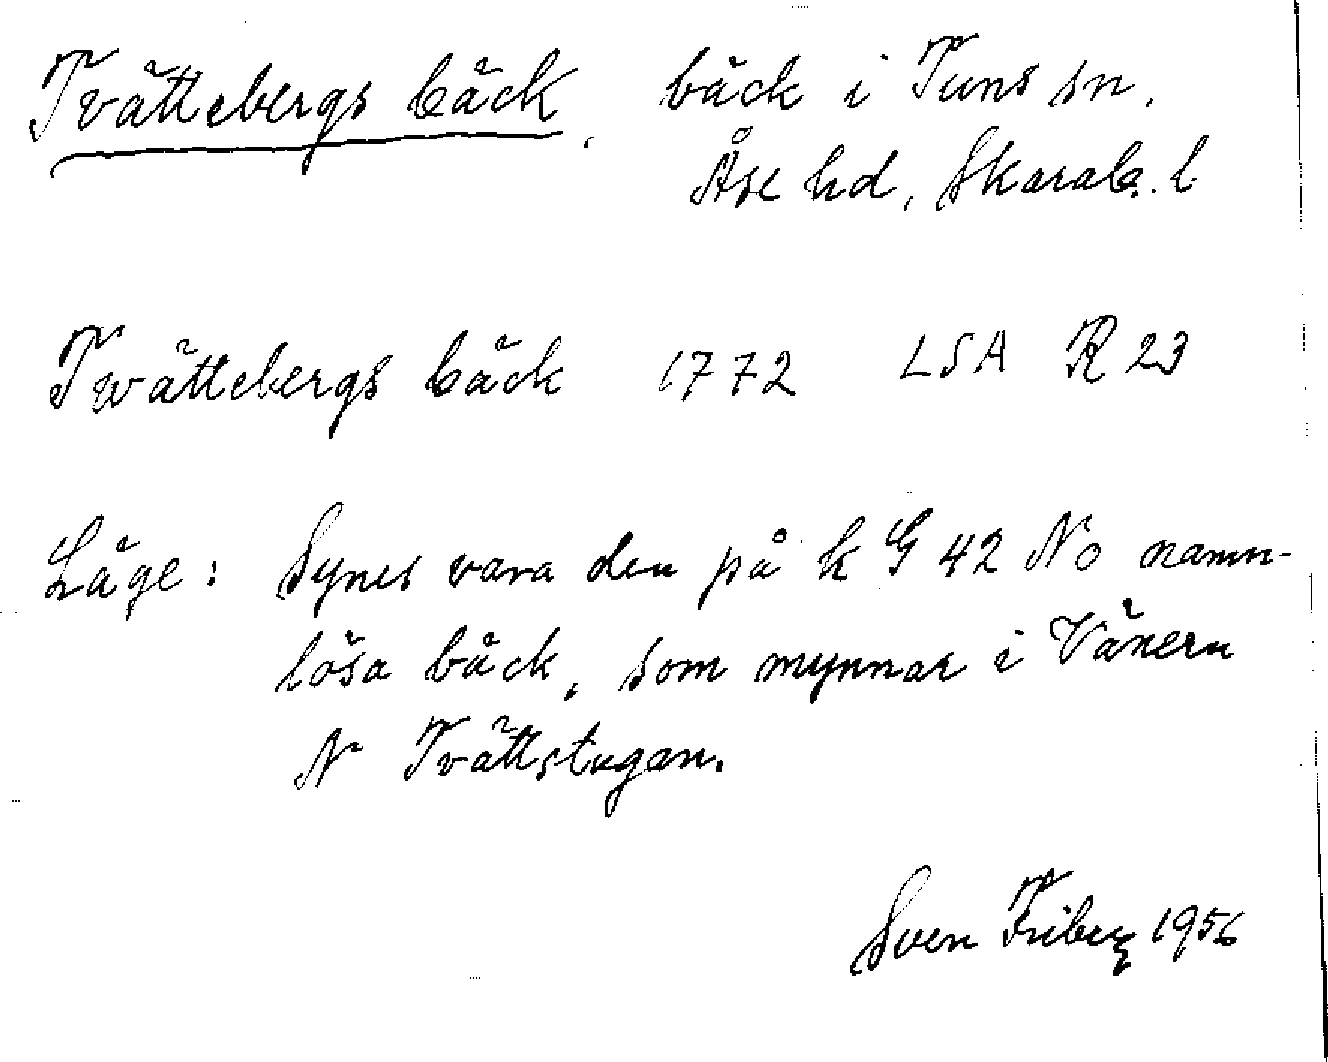 Tvättebergs bäck, bäck i Tuns sn,
Åse hd, Skarab. l
Twättebergs bäck 1772 LSA R 23
Läge: Synes vara den på k G 42 No namn-
lösa bäck, som mynnar i Vänern
N Tvättstugan.
Sven Friberg 1956